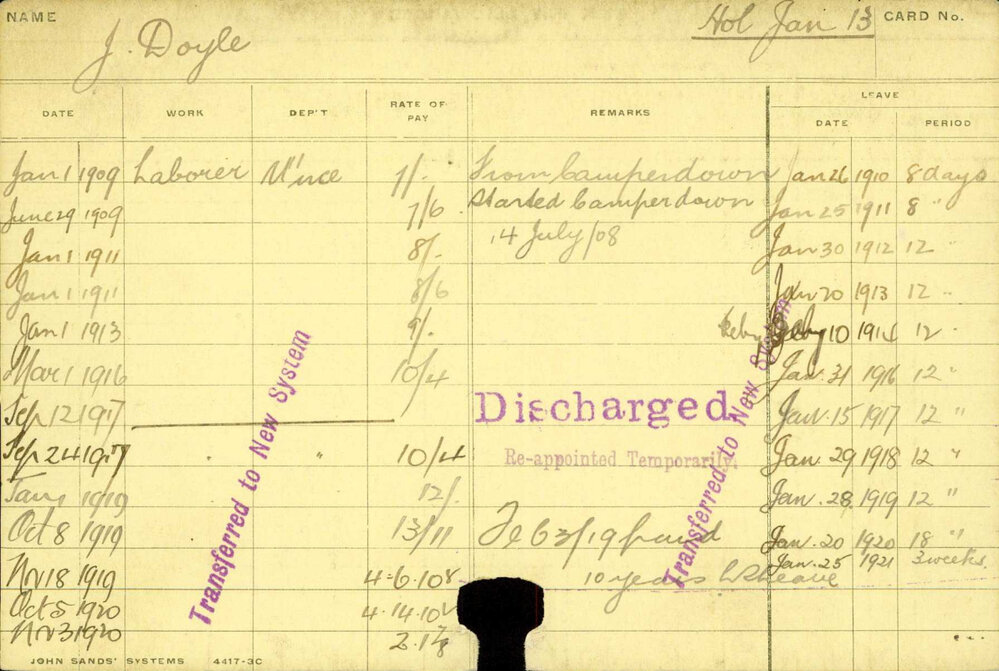 NAME
J. Doyle
Hol Jan 13
CARD No.
DATE WORK DEP'T RATE OF PAY REMARKS LEAVE
DATE PERIOD
Jan 1 1909 Laborer M'nce From Camperdown Jan 26 1910 8 days
June 29 1909 7/6 Started Camperdown Jan 25 1911 8 "
Jan 1 1911 8/- 14 July/08 Jan 30 1912 12 "
Jan 1 1911 8/6 Jan 20 1913 12 "
Jan 1 1913 9/- Feby 10 1914 12 "
Mar 1 1916 10/4 Jan. 31 1916 12 "
Sep 12 1917 Discharged Jan. 15 1917 12 "
Sep 24 1917 " " 10/4 Re-appointed Temporarily. Jan. 29 1918 12 "
Jan 1 1919 12/- Jan. 28 1919 12 "
Oct 8 1919 13/11 Jan. 20 1920 18 "
Jan. 25 1921 3 weeks.
Nov 18 1919 4-6-10 10 years
Oct 5 1920 4.14.10
Nov 3 1920
Transferred to New System
Transferred to New System
JOHN SANDS' SYSTEMS 4417-3C